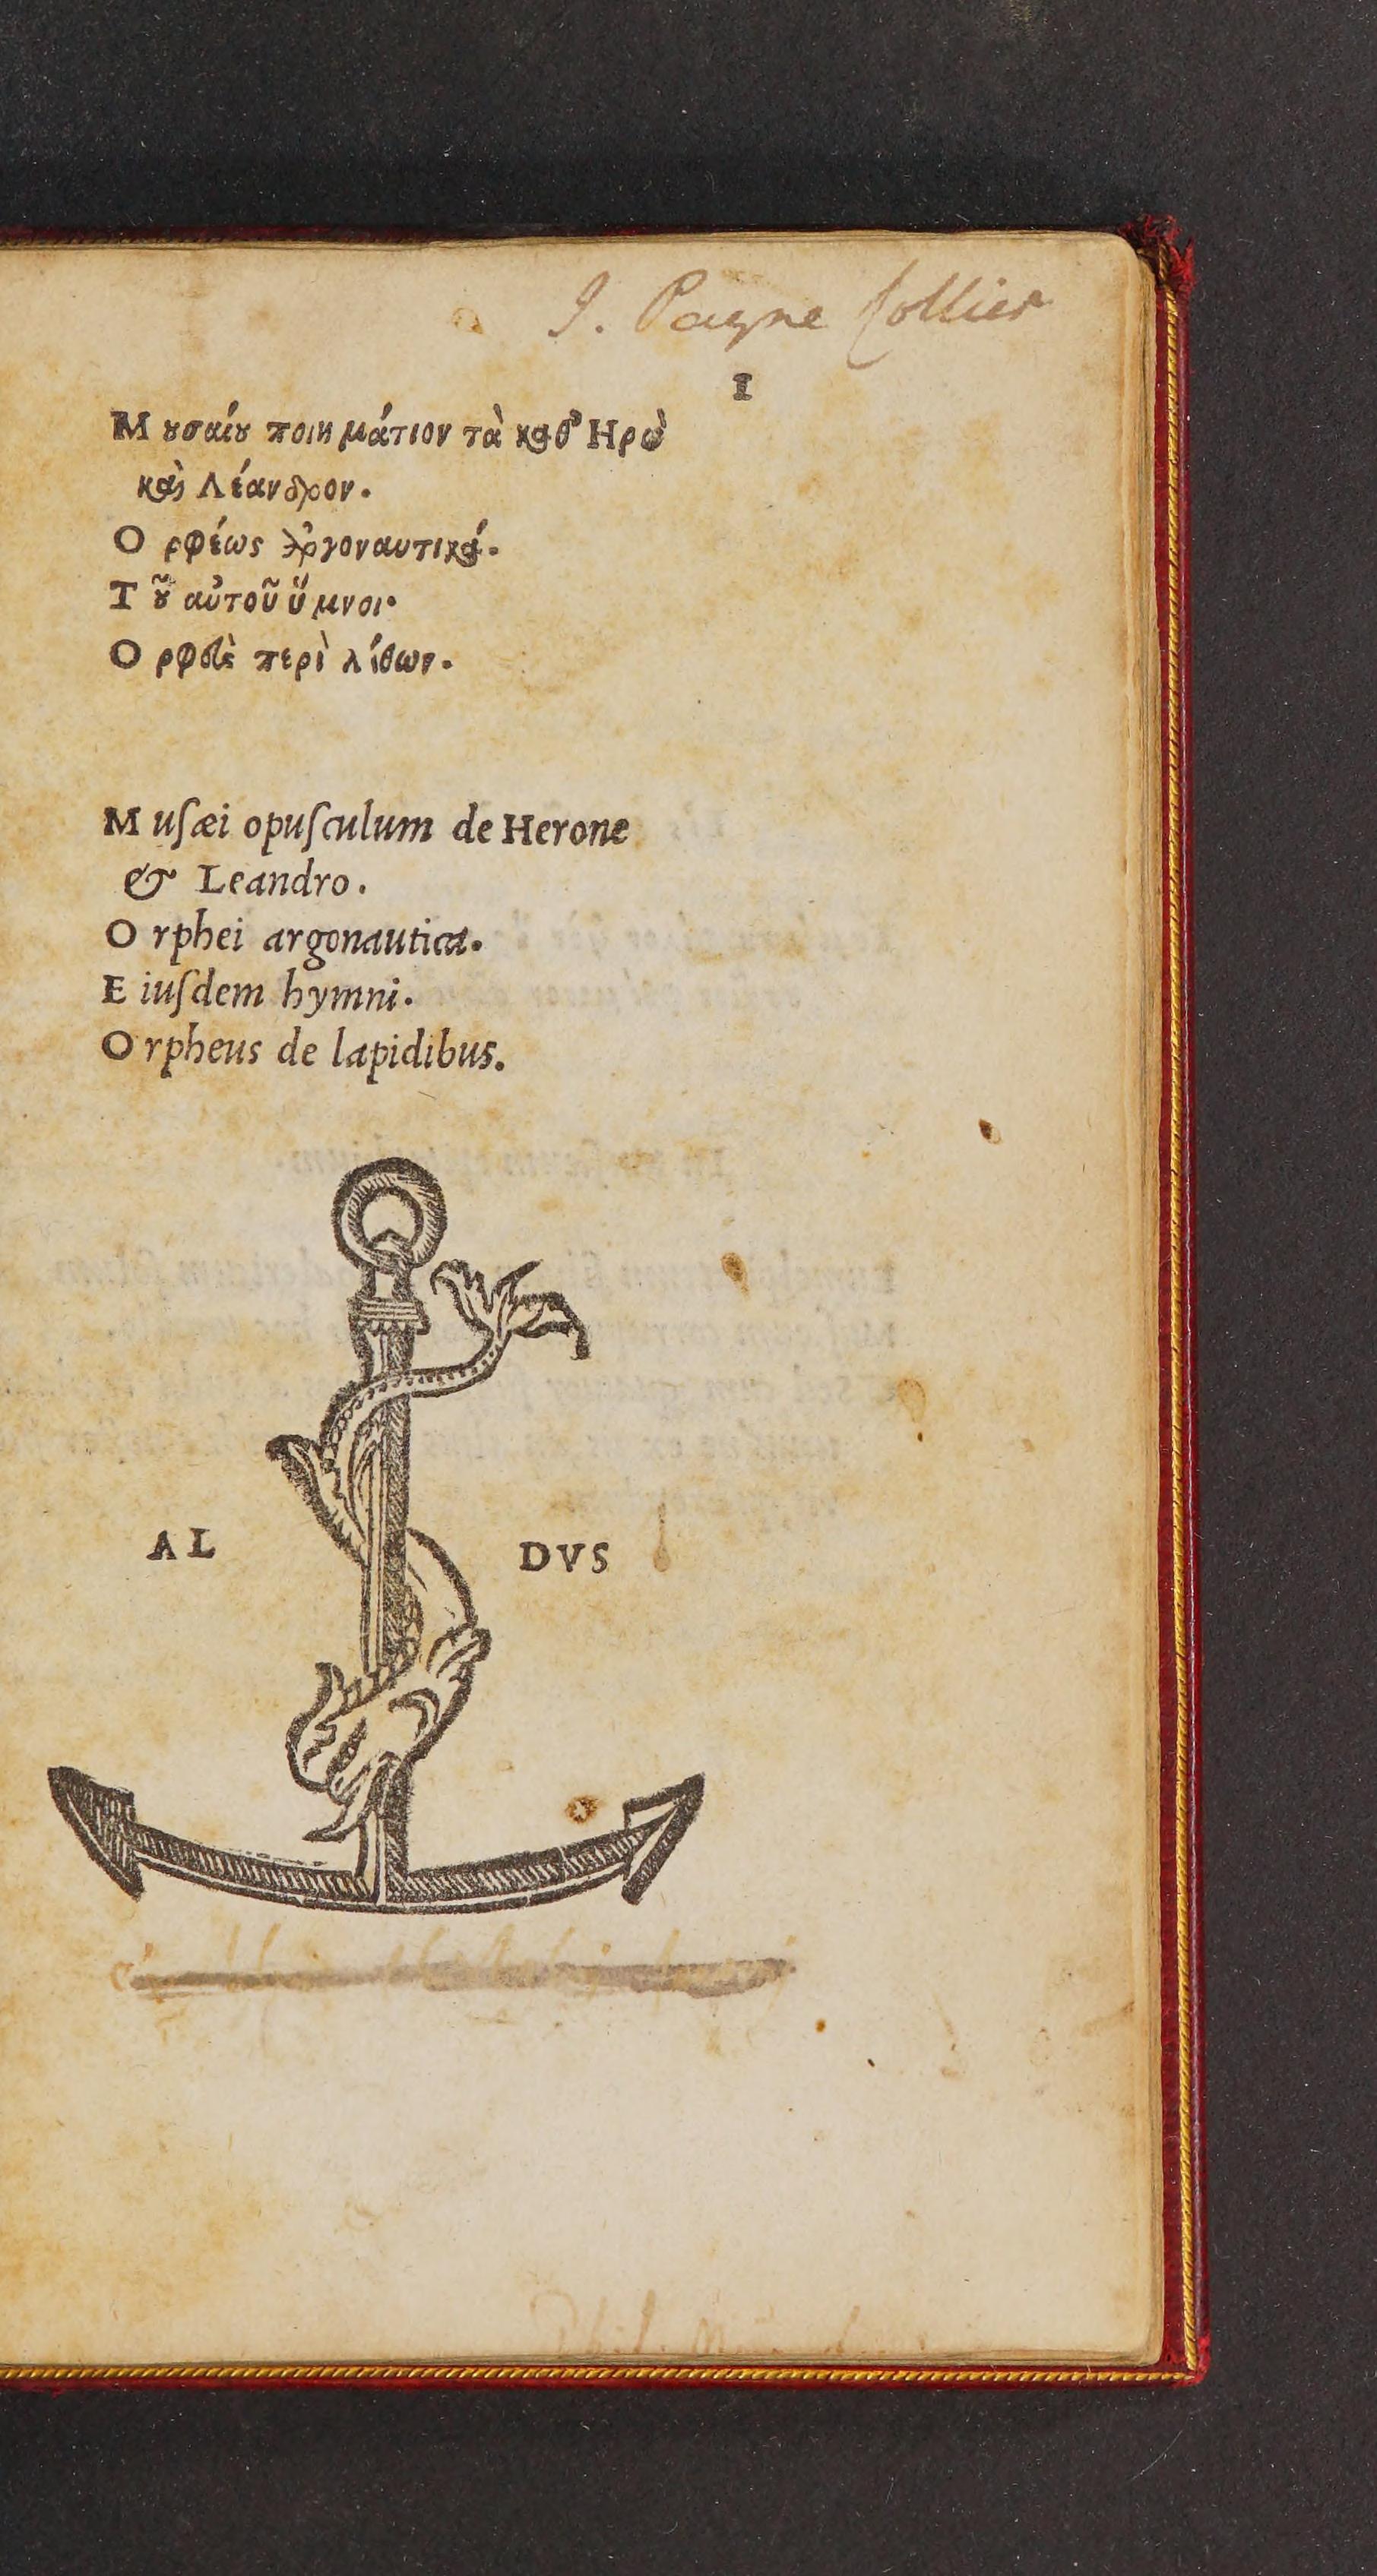 J. Payne Collier
1
Μουσαίου ποιημάτιον τὰ καθ' Ηρὼ
καὶ Λέανδρον.
Ορφέως ἀργοναυτικά.
Τοῦ αὐτοῦ ὕμνοι.
Ορφεὺς περὶ λίθων.
Musæi opusculum de Herone
& Leandro.
Orphei argonautica.
Eiusdem hymni.
Orpheus de lapidibus.
AL DVS